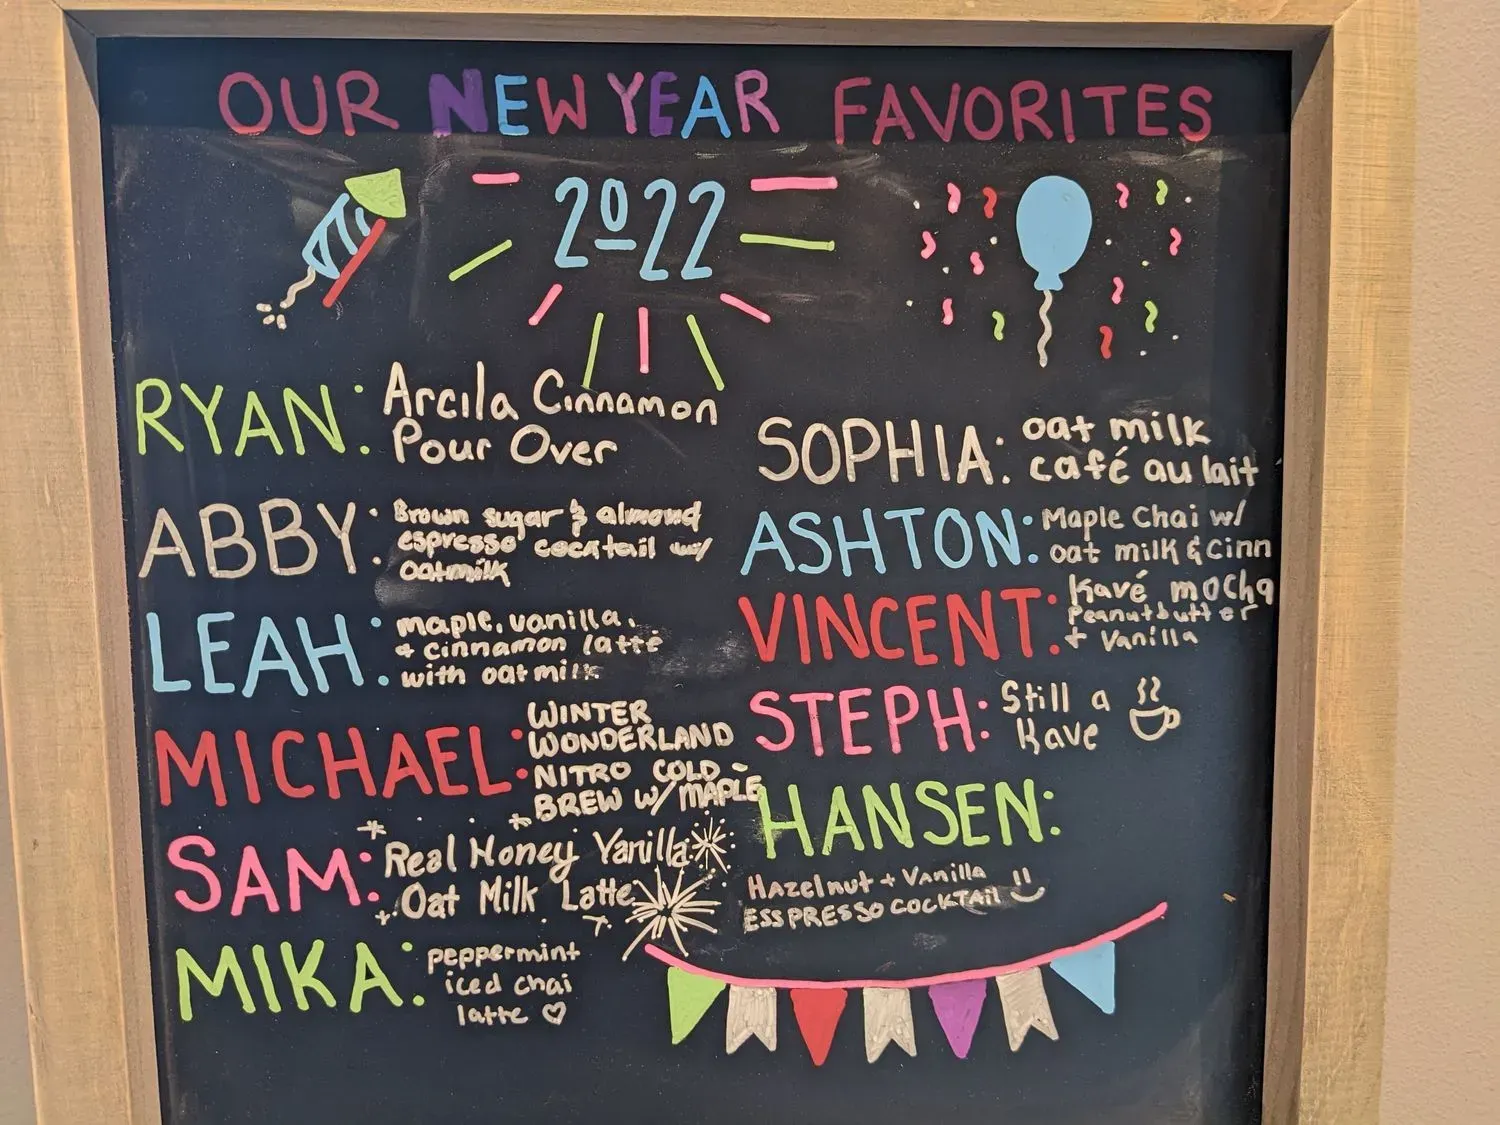 OUR NEW YEAR FAVORITES
2022
RYAN: Arcila Cinnamon
Pour Over
ABBY: Brown sugar & almond
espresso cocktail w/
oatmilk
LEAH: maple, vanilla,
+ cinnamon latté
with oatmilk
MICHAEL: WINTER
WONDERLAND
NITRO COLD-
BREW W/ MAPLE
SAM: Real Honey Vanilla
Oat Milk Latte
MIKA: peppermint
iced chai
latte
SOPHIA: oat milk
café au lait
ASHTON: Maple Chai w/
oat milk & cinn
VINCENT: Kavé mocha
Peanutbutter
+ Vanilla
STEPH: Still a
Kave
HANSEN:
Hazelnut + Vanilla
ESSPRESSO COCKTAIL